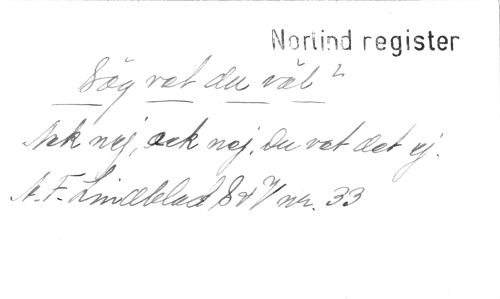 Norlind register
Säg vet du väl?
Ack nej, ack nej, du vet det ej.
A. F. Lindblad S o V nr. 33